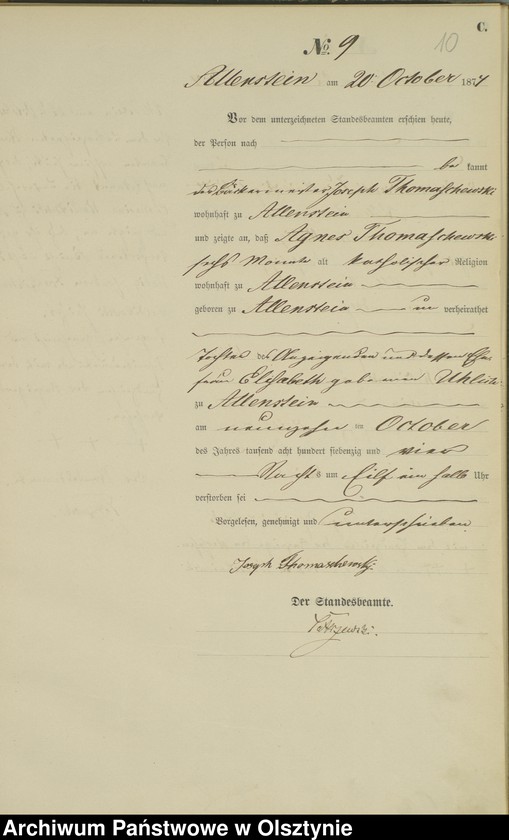 C.
No. 9
10
Allenstein am 20 October 1874
Vor dem unterzeichneten Standesbeamten erschien heute,
der Person nach
be kannt
der Bäckermeister Joseph Thomaschewski
wohnhaft zu Allenstein
und zeigte an, daß Agnes Thomaschewski
sechs Monate alt katholischer Religion
wohnhaft zu Allenstein
geboren zu Allenstein un verheirathet
Tochter des Anzeigenden und dessen Ehe-
frau Elisabeth geborenen
zu Allenstein
am neunzehn ten October
des Jahres tausend acht hundert siebenzig und vier
Nachts um Eilf ein halb Uhr
verstorben sei
Vorgelesen, genehmigt und unterschrieben
Joseph Thomaschewski
Der Standesbeamte.
Archiwum Państwowe w Olsztynie